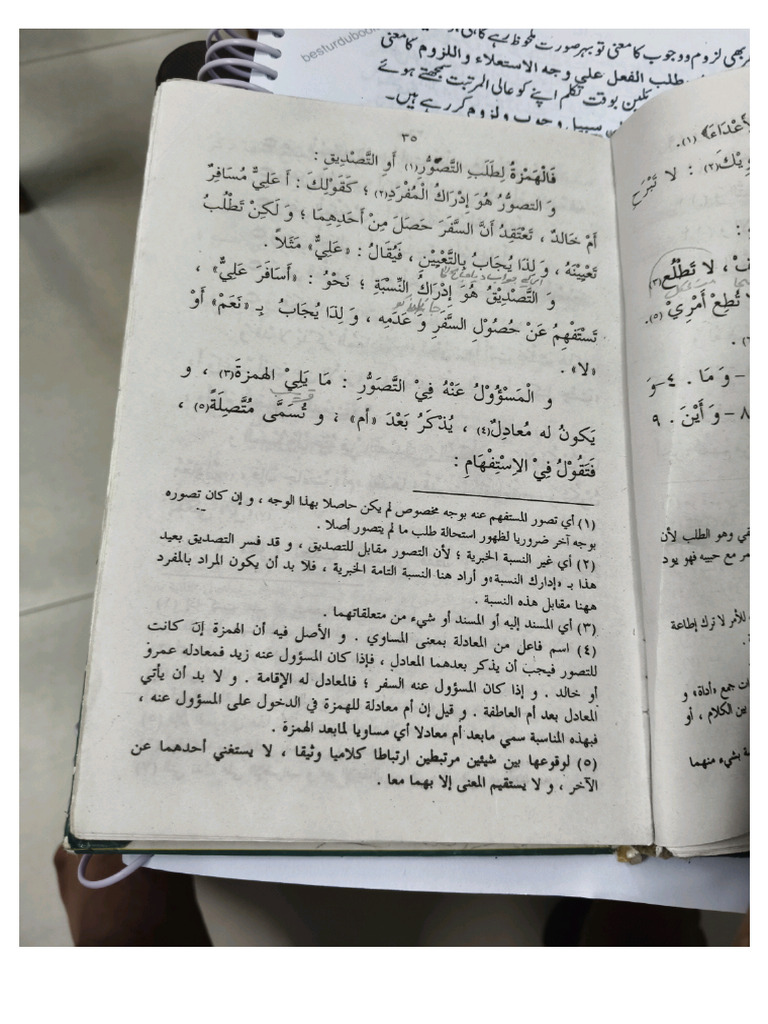 besturdubook
طلب الفعل علي وجه الاستعلاء واللزوم كا معنى
٣٥
فَالْهَمْزَةُ لِطَلَبِ التَّصَوُّرِ (١) أَوِ التَّصْدِيقِ :
وَ التصوُّرُ هُوَ إِدْرَاكُ الْمُفْرَدِ (٢) ؛ كَقَوْلِكَ : أَ عَلِيٌّ مُسَافِرٌ
أَمْ خَالدٌ ، تَعْتَقِدُ أَنَّ السَّفَرَ حَصَلَ مِنْ أَحَدِهِمَا ؛ وَ لَكِنْ تَطْلُبُ
تَعْيِيْنَهُ ، وَ لِذَا يُجَابُ بِالتَّعْيِيْنِ ، فَيُقَالُ : «عَلِيٌّ» مَثَلاً .
وَ التَّصْدِيْقُ هُوَ إِدْرَاكُ النِّسْبَةِ ؛ نَحْوُ : «أَسَافَرَ عَلِيٌّ» ،
تَسْتَفْهِمُ عَنْ حُصُوْلِ السَّفَرِ وَ عَدَمِه ، وَ لِذَا يُجَابُ بِـ «نَعَمْ» أَوْ
«لا» .
و الْمَسْؤُوْلُ عَنْهُ فِيْ التَّصَوُّرِ : مَا يَلِيْ الهمزةَ (٣) ، و
يَكونُ له مُعادِلٌ (٤) ، يُذْكَرُ بَعْدَ «أم» ؛ و تُسَمَّى مُتَّصِلَةً (٥) ،
فَتَقُوْلُ فِيْ الاِسْتِفْهَامِ :
(١) أي تصور للمستفهم عنه بوجه مخصوص لم يكن حاصلا بهذا الوجه ، و إن كان تصوره
بوجه آخر ضروريا لظهور استحالة طلب ما لم يتصور أصلا .
(٢) أي غير النسبة الخبرية ؛ لأن التصور مقابل للتصديق ، و قد فسر التصديق بعيد
هذا بـ «إدارك النسبة» و أراد هنا النسبة التامة الخبرية ، فلا بد أن يكون المراد بالمفرد
ههنا مقابل هذه النسبة .
(٣) أي المسند إليه أو المسند أو شيء من متعلقاتهما .
(٤) اسم فاعل من المعادلة بمعنى المساوي . و الأصل فيه أن الهمزة إن كانت
للتصور فيجب أن يذكر بعدهما المعادل ، فإذا كان المسؤول عنه زيد فمعادله عمرو
أو خالد . و إذا كان المسؤول عنه السفر ؛ فالمعادل له الإقامة . و لا بد أن يأتي
المعادل بعد أم العاطفة . و قيل إن أم معادلة للهمزة في الدخول على المسؤول عنه ،
فبهذه المناسبة سمي مابعد أم معادلا أي مساويا لمابعد الهمزة .
(٥) لوقوعها بين شيئين مرتبطين ارتباطا كلاميا وثيقا ، لا يستغني أحدهما عن
الآخر ، و لا يستقيم المعنى إلا بهما معا .
أَعْدَاءَ﴾ (١) .
وِيْكَ (٢) : لا تَبْرَحِ
لا تَطْلُعْ (٣)
تُطِعْ أَمْرِيْ (٥) .
- وَ مَا . ٤- وَ
٨- وَ أَيْنَ . ٩
في وهو الطلب لأن
مر مع حبيبه فهو يود
للأمر لا ترك إطاعة
ات جمع «أداة» و
بين الكلام ، أو
ة بشيء منهما